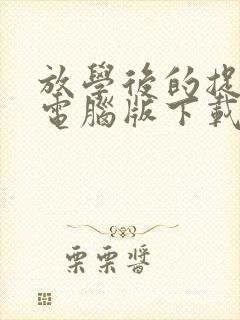 放學後的捉
電腦版下載
栗栗醬